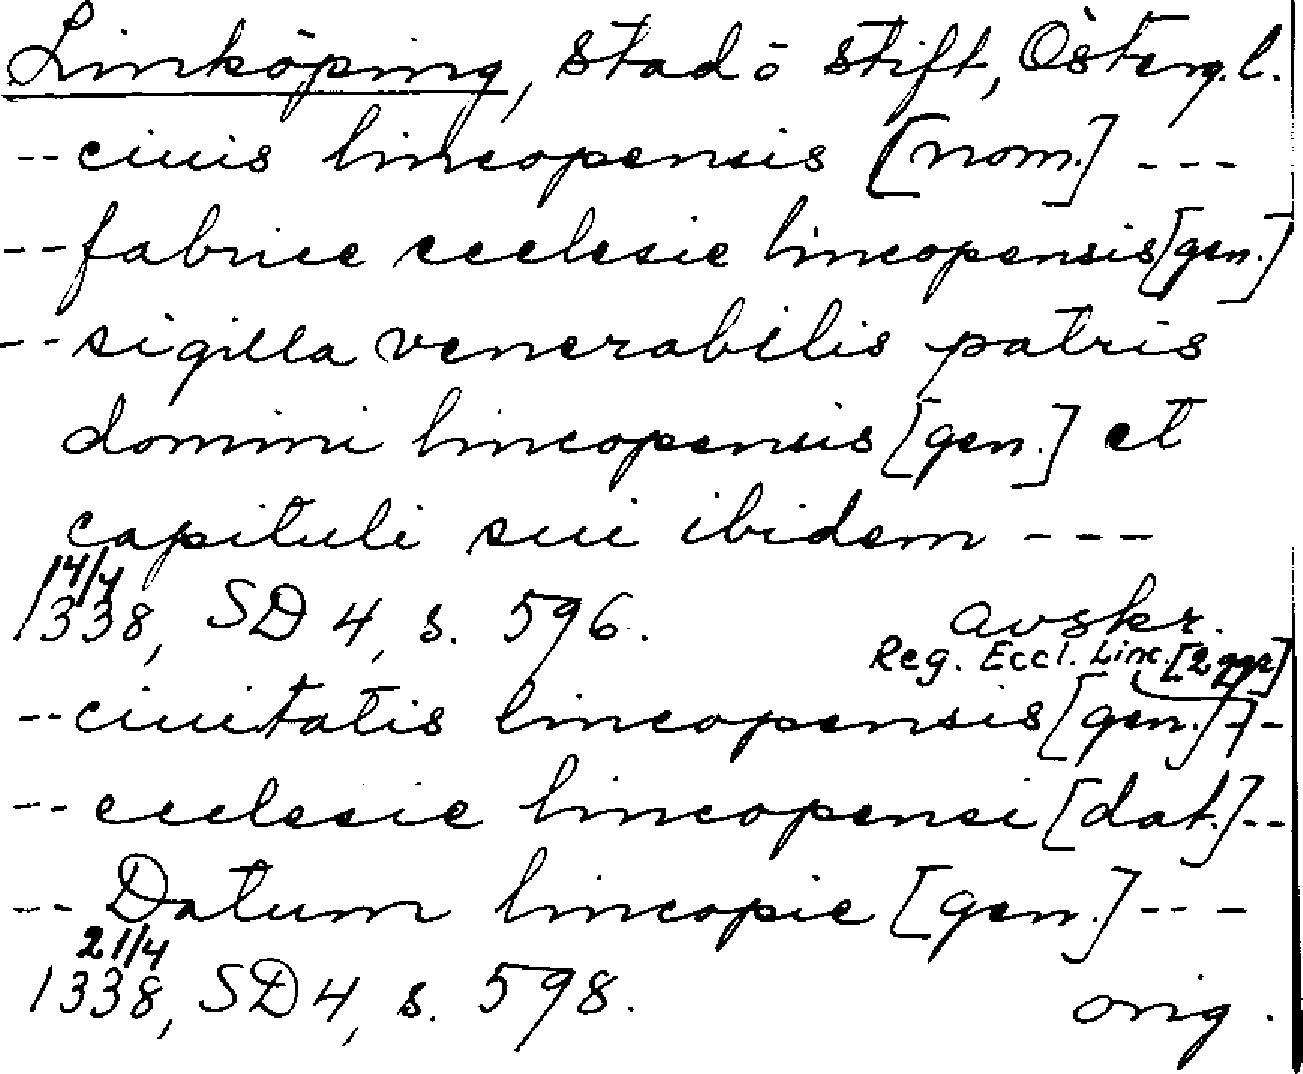 Linköping, stad o stift, Österg.l.
-- ciuis lincopensis [nom.] ---
-- fabrice ecclesie lincopensis [gen.]
-- sigilla venerabilis patris
domini lincopensis [gen.] et
capituli sui ibidem ---
14/4
1338, SD 4, s. 596. avskr.
Reg. Eccl. Linc. [2 ggr]
-- ciuitatis lincopensis [gen.] --
-- ecclesie lincopensi [dat.] --
-- Datum lincopie [gen.] ---
21/4
1338, SD 4, s. 598. orig.